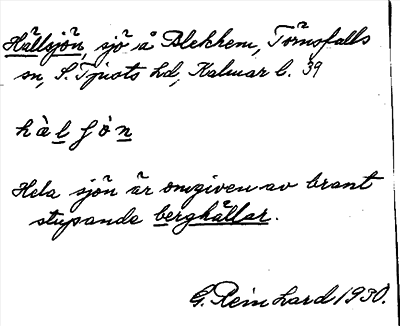 Hällsjön, sjö å Blekhem, Törnsfalls
sn, S. Tjusts hd, Kalmar l. 39
hàlʃòn
Hela sjön är omgiven av brant
stupande berghällar.
G. Reinhard 1930.